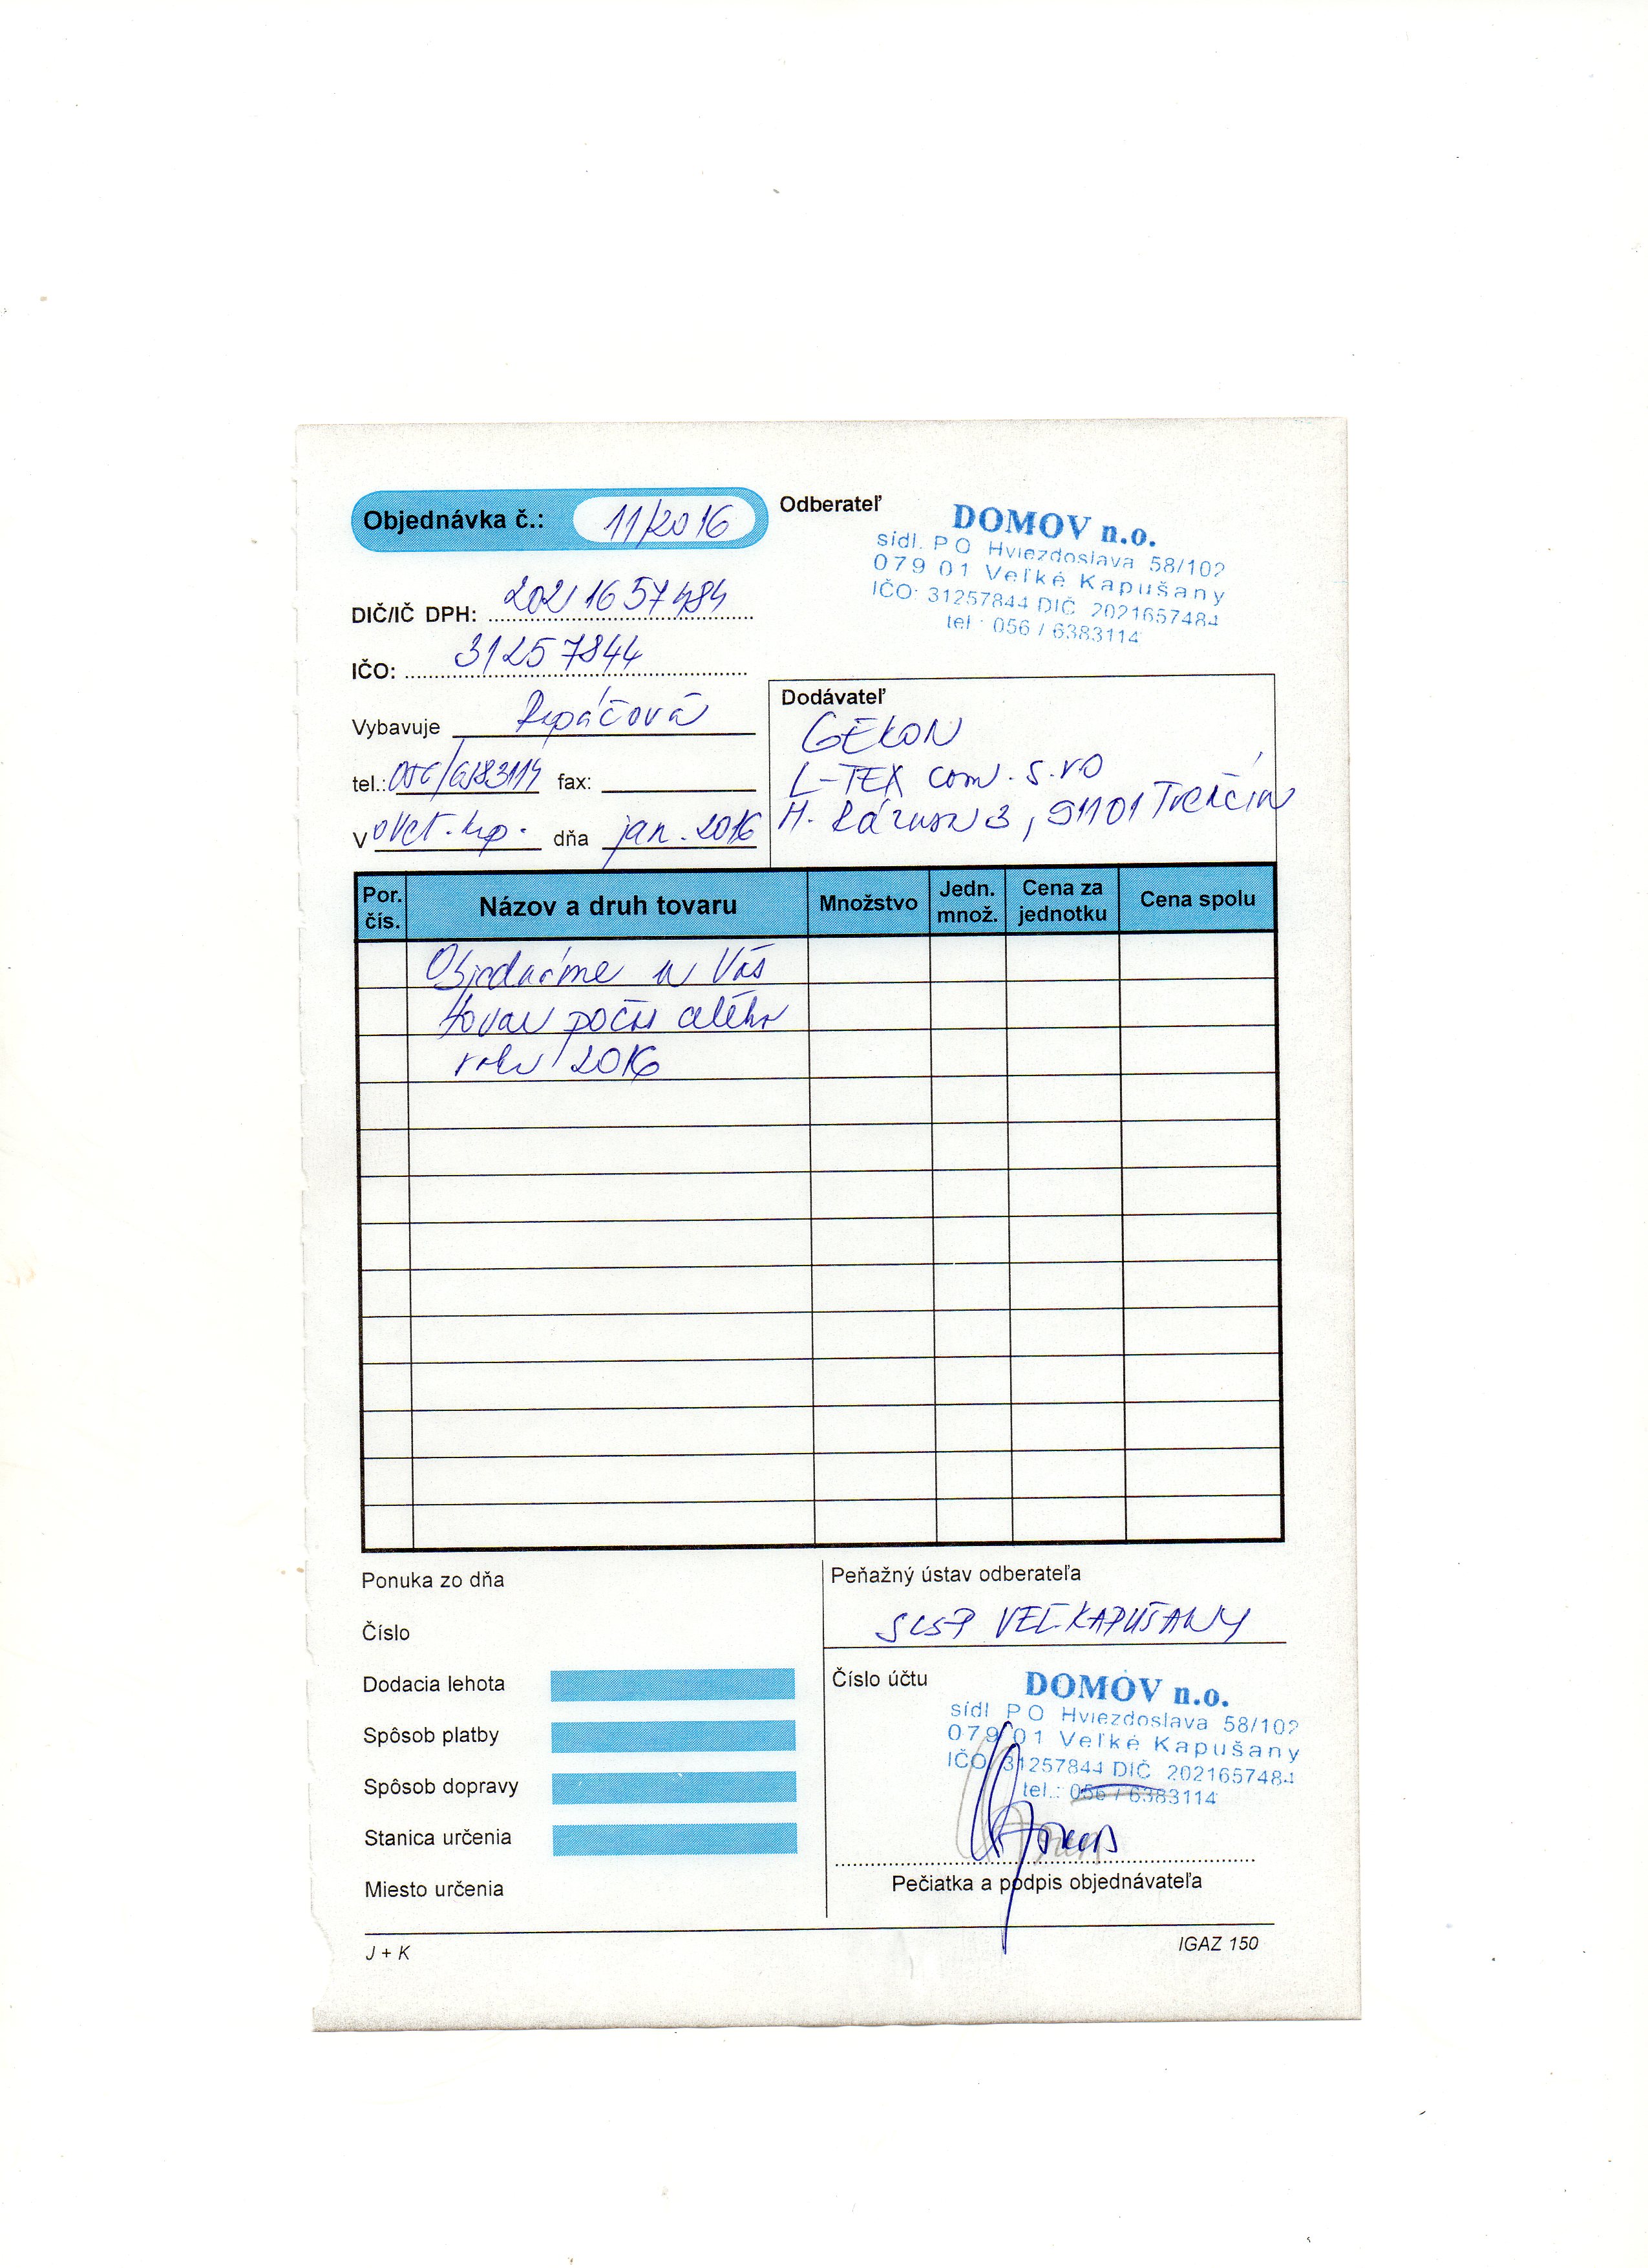 Objednávka č.: 11/2016
Odberateľ
DOMOV n.o.
sídl. PO Hviezdoslava 58/102
079 01 Veľké Kapušany
IČO: 31257844 DIČ 2021657484
tel.: 056 / 6383114
DIČ/IČ DPH: 2021657484
IČO: 31257844
Vybavuje Repáčová
tel.: 056/6383114 fax:
V dňa jan. 2016
Dodávateľ
GEKON
L-TEX com. s.r.o
M. Rázusa 3, 91101 Trenčín
Por. čís. Názov a druh tovaru Množstvo Jedn. množ. Cena za jednotku Cena spolu
Objednáme u Vás
tovar počas celého
roku 2016
Ponuka zo dňa
Číslo
Dodacia lehota
Spôsob platby
Spôsob dopravy
Stanica určenia
Miesto určenia
Peňažný ústav odberateľa
SLSP VEĽ.KAPUŠANY
Číslo účtu
DOMOV n.o.
sídl PO Hviezdoslava 58/102
079 01 Veľké Kapušany
IČO 31257844 DIČ 2021657484
tel.: 056 / 6383114
Pečiatka a podpis objednávateľa
J + K
IGAZ 150